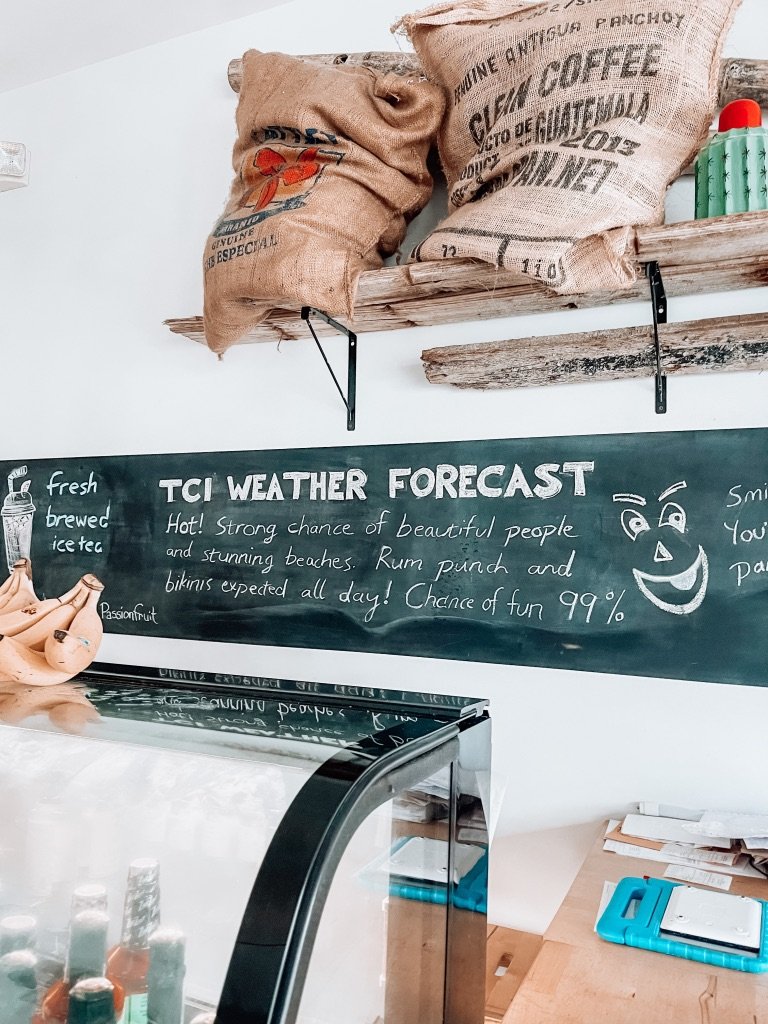 GENUINE ANTIGUA PANCHOY
CLEIN COFFEE
DE GUATEMALA
2013
PAN.NET
72 110
GENUINE
ESPECIAL
fresh
brewed
ice tea
Passionfruit
TCI WEATHER FORECAST
Hot! Strong chance of beautiful people
and stunning beaches. Rum punch and
bikinis expected all day! Chance of fun 99%